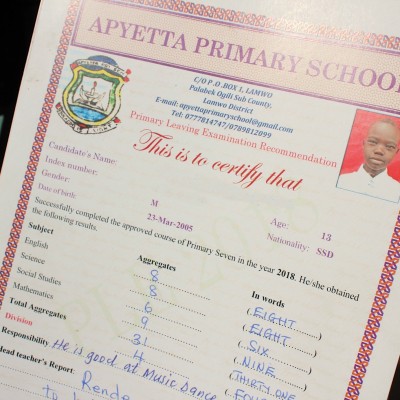 APYETTA PRIMARY SCHOOL
C/O P .O .BOX 1, LAMWO
Palabek Ogili Sub County,
Lamwo District
E-mail: apyettaprimaryschool@gmail.com
Tel: 0777814747/0789812099
Primary Leaving Examination Recommendation
This is to certify that
Candidate's Name:
Index number:
Gender: M
Age: 13
Date of birth: 23-Mar-2005
Nationality: SSD
Successfully completed the approved course of Primary Seven in the year 2018. He/she obtained
the following results.
Subject Aggregates In words
English 8 (EIGHT)
Science 8 (EIGHT)
Social Studies 6 (SIX)
Mathematics 9 (NINE)
Total Aggregates 31 (THIRTY ONE)
Division 4
Responsibility He is good at Music Dance
Head teacher's Report: